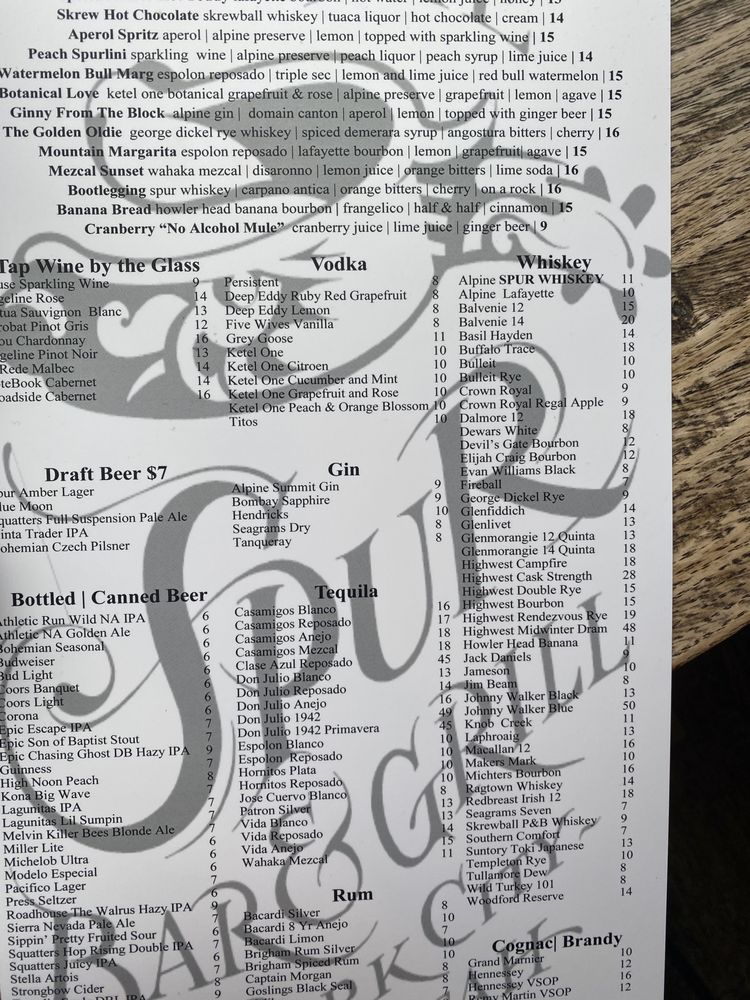 Skrew Hot Chocolate skrewball whiskey | tuaca liquor | hot chocolate | cream | 14
Aperol Spritz aperol | alpine preserve | lemon | topped with sparkling wine | 15
Peach Spurlini sparkling wine | alpine preserve | peach liquor | peach syrup | lime juice | 14
Watermelon Bull Marg espolon reposado | triple sec | lemon and lime juice | red bull watermelon | 15
Botanical Love ketel one botanical grapefruit & rose | alpine preserve | grapefruit | lemon | agave | 15
Ginny From The Block alpine gin | domain canton | aperol | lemon | topped with ginger beer | 15
The Golden Oldie george dickel rye whiskey | spiced demerara syrup | angostura bitters | cherry | 16
Mountain Margarita espolon reposado | lafayette bourbon | lemon | grapefruit| agave | 15
Mezcal Sunset wahaka mezcal | disaronno | lemon juice | orange bitters | lime soda | 16
Bootlegging spur whiskey | carpano antica | orange bitters | cherry | on a rock | 16
Banana Bread howler head banana bourbon | frangelico | half & half | cinnamon | 15
Cranberry “No Alcohol Mule” cranberry juice | lime juice | ginger beer | 9
Tap Wine by the Glass
use Sparkling Wine 9
geline Rose 14
tua Sauvignon Blanc 13
robat Pinot Gris 12
ou Chardonnay 16
geline Pinot Noir 13
Rede Malbec 14
teBook Cabernet 14
oadside Cabernet 16
Draft Beer $7
our Amber Lager
lue Moon
quatters Full Suspension Pale Ale
inta Trader IPA
ohemian Czech Pilsner
Bottled | Canned Beer
Athletic Run Wild NA IPA 6
Athletic NA Golden Ale 6
Bohemian Seasonal 6
Budweiser 6
Bud Light 6
Coors Banquet 6
Coors Light 6
Corona 7
Epic Escape IPA 7
Epic Son of Baptist Stout 7
Epic Chasing Ghost DB Hazy IPA 9
Guinness 7
High Noon Peach 8
Kona Big Wave 7
Lagunitas IPA 7
Lagunitas Lil Sumpin 7
Melvin Killer Bees Blonde Ale 7
Miller Lite 6
Michelob Ultra 6
Modelo Especial 6
Pacifico Lager 7
Press Seltzer 6
Roadhouse The Walrus Hazy IPA 9
Sierra Nevada Pale Ale 7
Sippin’ Pretty Fruited Sour 6
Squatters Hop Rising Double IPA 9
Squatters Juicy IPA 7
Stella Artois 7
Strongbow Cider 8
Vodka
Persistent 8
Deep Eddy Ruby Red Grapefruit 8
Deep Eddy Lemon 8
Five Wives Vanilla 8
Grey Goose 11
Ketel One 10
Ketel One Citroen 10
Ketel One Cucumber and Mint 10
Ketel One Grapefruit and Rose 10
Ketel One Peach & Orange Blossom 10
Titos 10
Gin
Alpine Summit Gin 9
Bombay Sapphire 9
Hendricks 10
Seagrams Dry 8
Tanqueray 8
Tequila
Casamigos Blanco 16
Casamigos Reposado 17
Casamigos Anejo 18
Casamigos Mezcal 18
Clase Azul Reposado 45
Don Julio Blanco 13
Don Julio Reposado 14
Don Julio Anejo 16
Don Julio 1942 49
Don Julio 1942 Primavera 45
Espolon Blanco 10
Espolon Reposado 10
Hornitos Plata 10
Hornitos Reposado 10
Jose Cuervo Blanco 8
Patron Silver 13
Vida Blanco 13
Vida Reposado 14
Vida Anejo 15
Wahaka Mezcal 11
Rum
Bacardi Silver 8
Bacardi 8 Yr Anejo 10
Bacardi Limon 7
Brigham Rum Silver 10
Brigham Spiced Rum 10
Captain Morgan 8
Goslings Black Seal 8
Whiskey
Alpine SPUR WHISKEY 11
Alpine Lafayette 10
Balvenie 12 15
Balvenie 14 20
Basil Hayden 14
Buffalo Trace 18
Bulleit 10
Bulleit Rye 10
Crown Royal 9
Crown Royal Regal Apple 9
Dalmore 12 18
Dewars White 8
Devil’s Gate Bourbon 12
Elijah Craig Bourbon 12
Evan Williams Black 8
Fireball 7
George Dickel Rye 9
Glenfiddich 14
Glenlivet 13
Glenmorangie 12 Quinta 13
Glenmorangie 14 Quinta 18
Highwest Campfire 18
Highwest Cask Strength 28
Highwest Double Rye 15
Highwest Bourbon 15
Highwest Rendezvous Rye 19
Highwest Midwinter Dram 48
Howler Head Banana 11
Jack Daniels 9
Jameson 10
Jim Beam 8
Johnny Walker Black 13
Johnny Walker Blue 50
Knob Creek 11
Laphroaig 13
Macallan 12 16
Makers Mark 10
Michters Bourbon 16
Ragtown Whiskey 14
Redbreast Irish 12 18
Seagrams Seven 7
Skrewball P&B Whiskey 9
Southern Comfort 7
Suntory Toki Japanese 13
Templeton Rye 10
Tullamore Dew 8
Wild Turkey 101 8
Woodford Reserve 14
Cognac| Brandy
Grand Marnier 10
Hennessey 12
Hennessey VSOP 16
Remy Martin VSOP 12
SPUR
BAR & GRILL